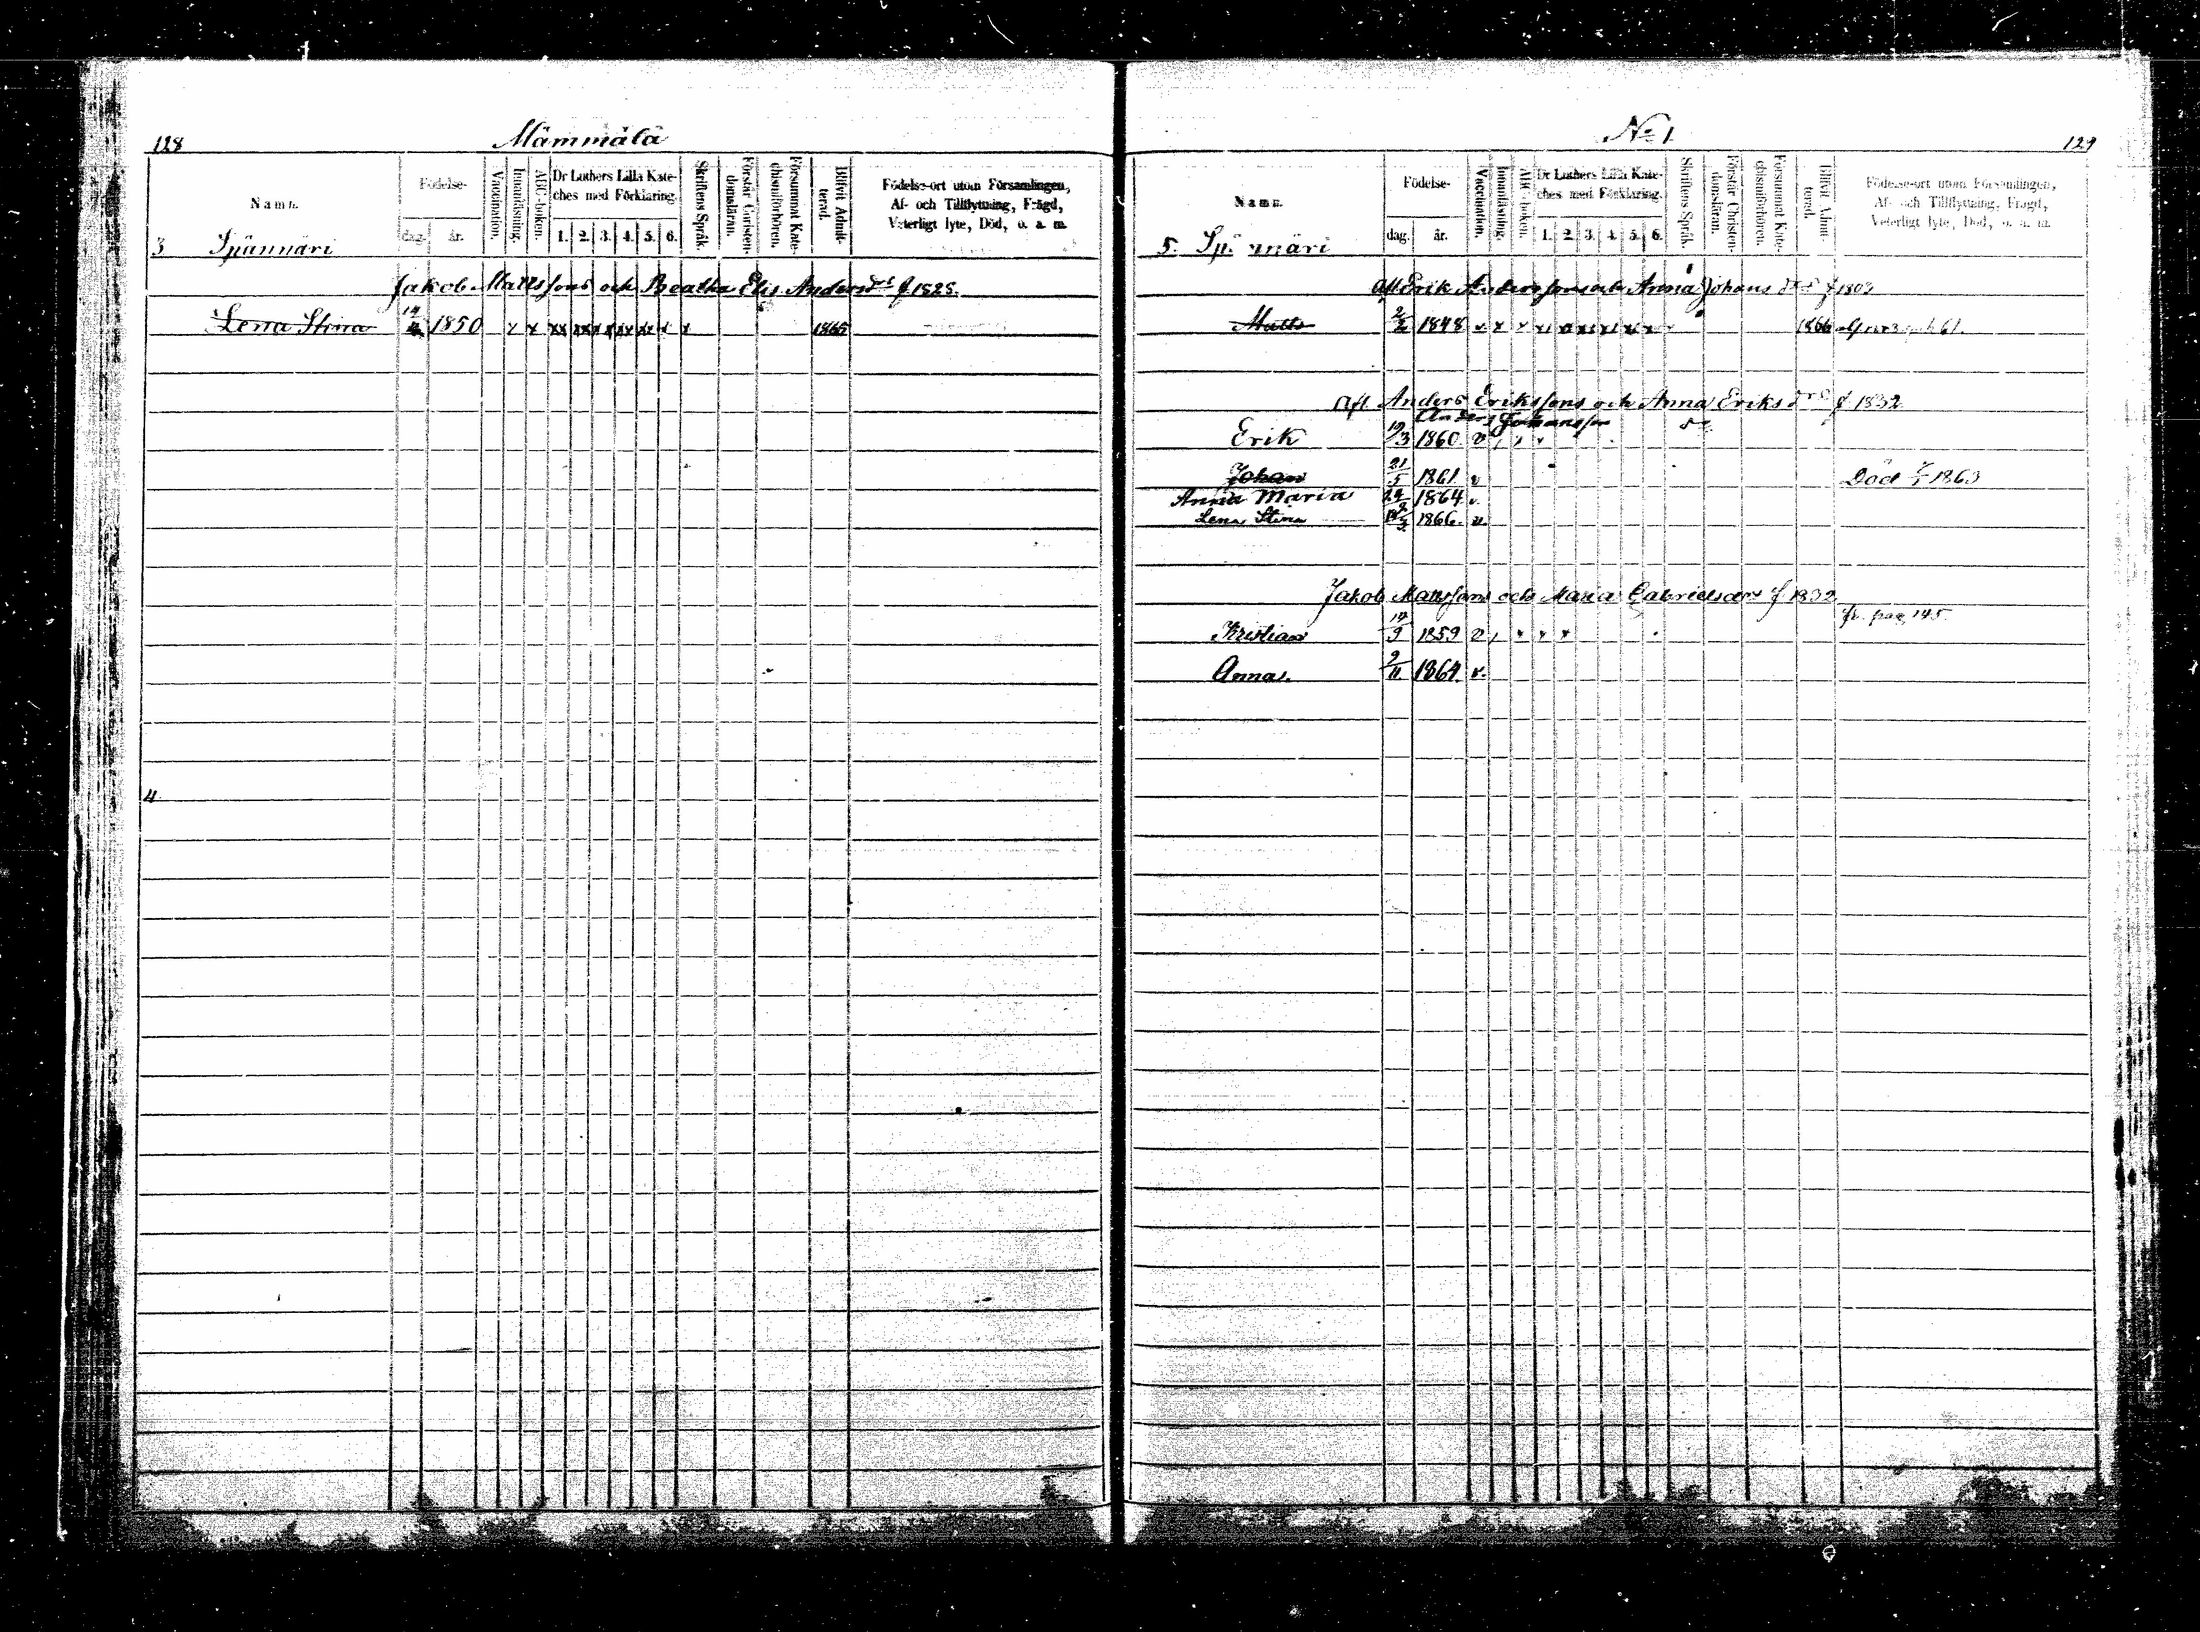 128
Mämmälä
Namn.
Födelse-
dag.
år.
Vaccination.
Innanläsning.
ABC-boken.
Dr Luthers Lilla Kate-
ches med Förklaring.
1. 2. 3. 4. 5. 6.
Skriftens Språk.
Förstår Christen-
domsläran.
Försummat Kate-
chismiförhören.
Blifvit Admit-
terad.
Födelse-ort utom Församlingen,
Af- och Tillflyttning, Frägd,
Veterligt lyte, Död, o. a. m.
3 Spännäri
Jakob Mattssons och Beatha Elis Andersdr f 1828.
Lena Stina 1850 x x xx xx x x xx xx x x 1865
4
No 1
129
Namn.
Födelse-
dag.
år.
Vaccination.
Innanläsning.
ABC-boken.
Dr Luthers Lilla Kate-
ches med Förklaring.
1. 2. 3. 4. 5. 6.
Skriftens Språk.
Förstår Christen-
domsläran.
Försummat Kate-
chismiförhören.
Blifvit Admit-
terad.
Födelse-ort utom Församlingen,
Af- och Tillflyttning, Frägd,
Veterligt lyte, Död, o. a. m.
5. Spännäri
Aft Erik Anderssons och Anna Johansdr f 1803
Matts 2/2 1848 1866
Aft Anders Erikssons och Anna Eriksdr f 1832
Anders Johansson
Erik 19/3 1860 v
Johan 21/5 1861 v Död 1863
Anna Maria 1864 v
Lena Stina 1866. v.
Jakob Mattssons och Maria Gabrielsdrs f 1832
fr. pag 145.
Kristian 14/9 1859 v
Anna. 9/11 1864. v.